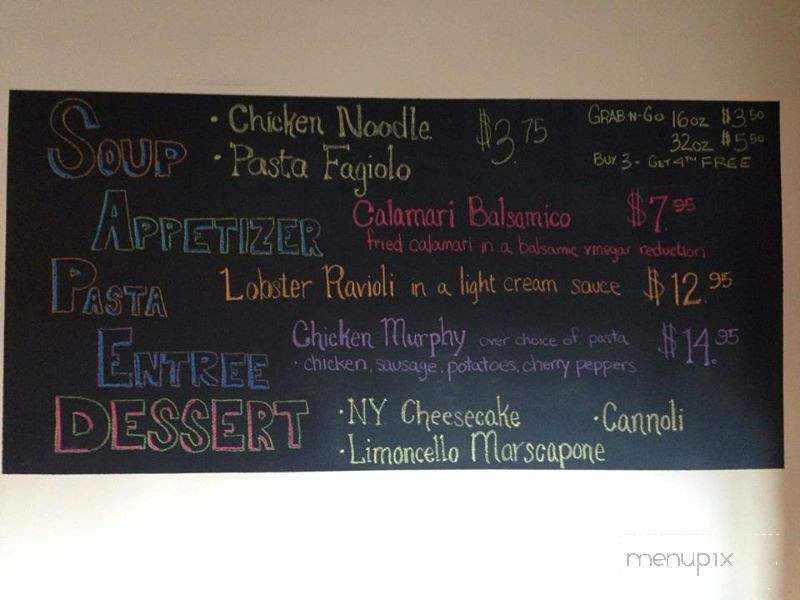 SOUP
· Chicken Noodle
· Pasta Fagiolo
$3.75
GRAB-N-GO 16oz $3.50
32oz $5.50
BUY 3 - GET 4TH FREE
APPETIZER
Calamari Balsamico $7.95
fried calamari in a balsamic vinegar reduction
PASTA
Lobster Ravioli in a light cream sauce $12.95
ENTREE
Chicken Murphy over choice of pasta $14.95
· chicken, sausage, potatoes, cherry peppers
DESSERT
· NY Cheesecake · Cannoli
· Limoncello Marscapone
menupix